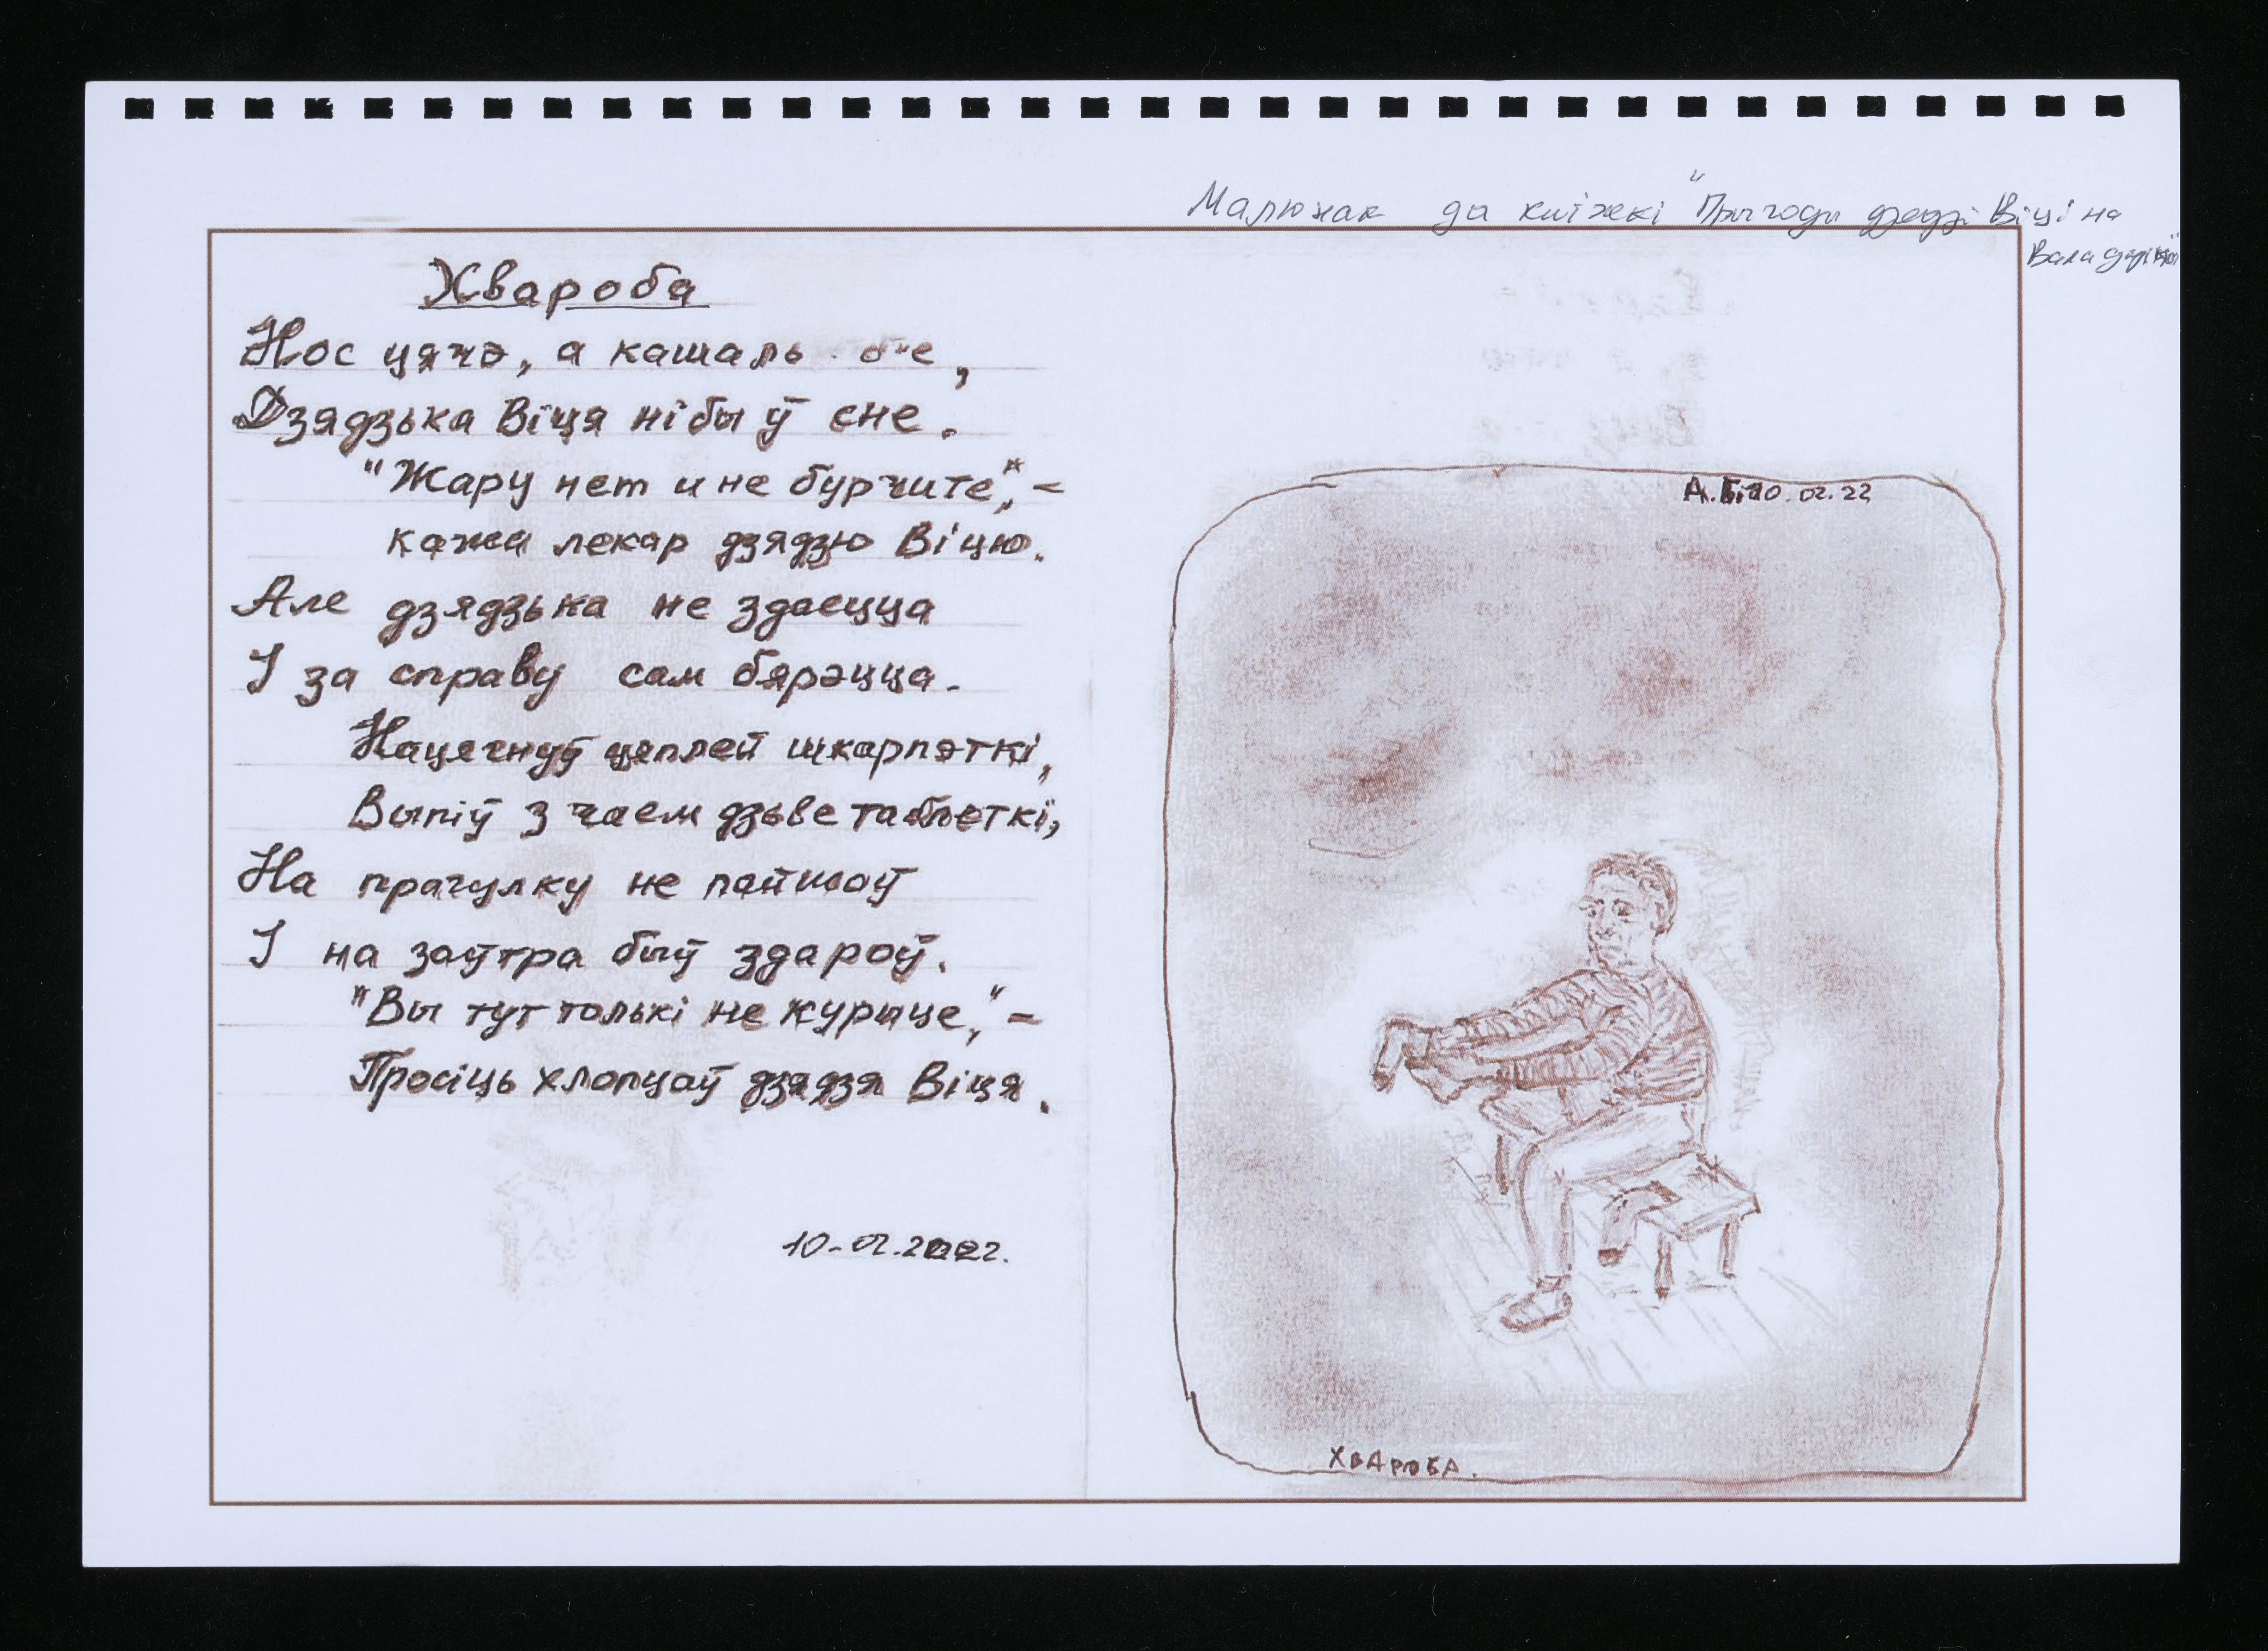 Малюнак да кніжкі "Прыгоды дзядзі Віці на
Валадарцы"
Хвароба
Нос цячэ, а кашаль б'е,
Дзядзька Віця нібы ў сне.
"Жару нет и не бурчите", –
кажа лекар дзядзю Віцю.
Але дзядзька не здаецца
І за справу сам бярэцца.
Нацягнуў цяплей шкарпэткі,
Выпіў з чаем дзьве таблеткі,
На прагулку не пайшоў
І на заўтра быў здароў.
"Вы тут толькі не курыце," –
Просіць хлопцаў дзядзя Віця.
10-02.2022.
02.22
ХВАРОБА.